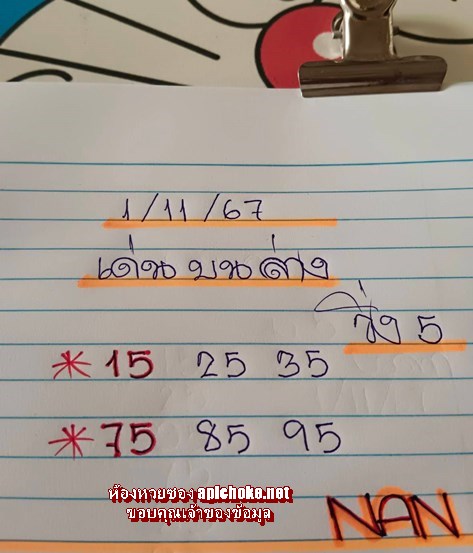 1/11/67
เด่น บน ล่าง
วิ่ง 5
* 15 25 35
* 75 85 95
ห้องหวยซอง apichoke.net
ขอบคุณเจ้าของข้อมูล
NAN